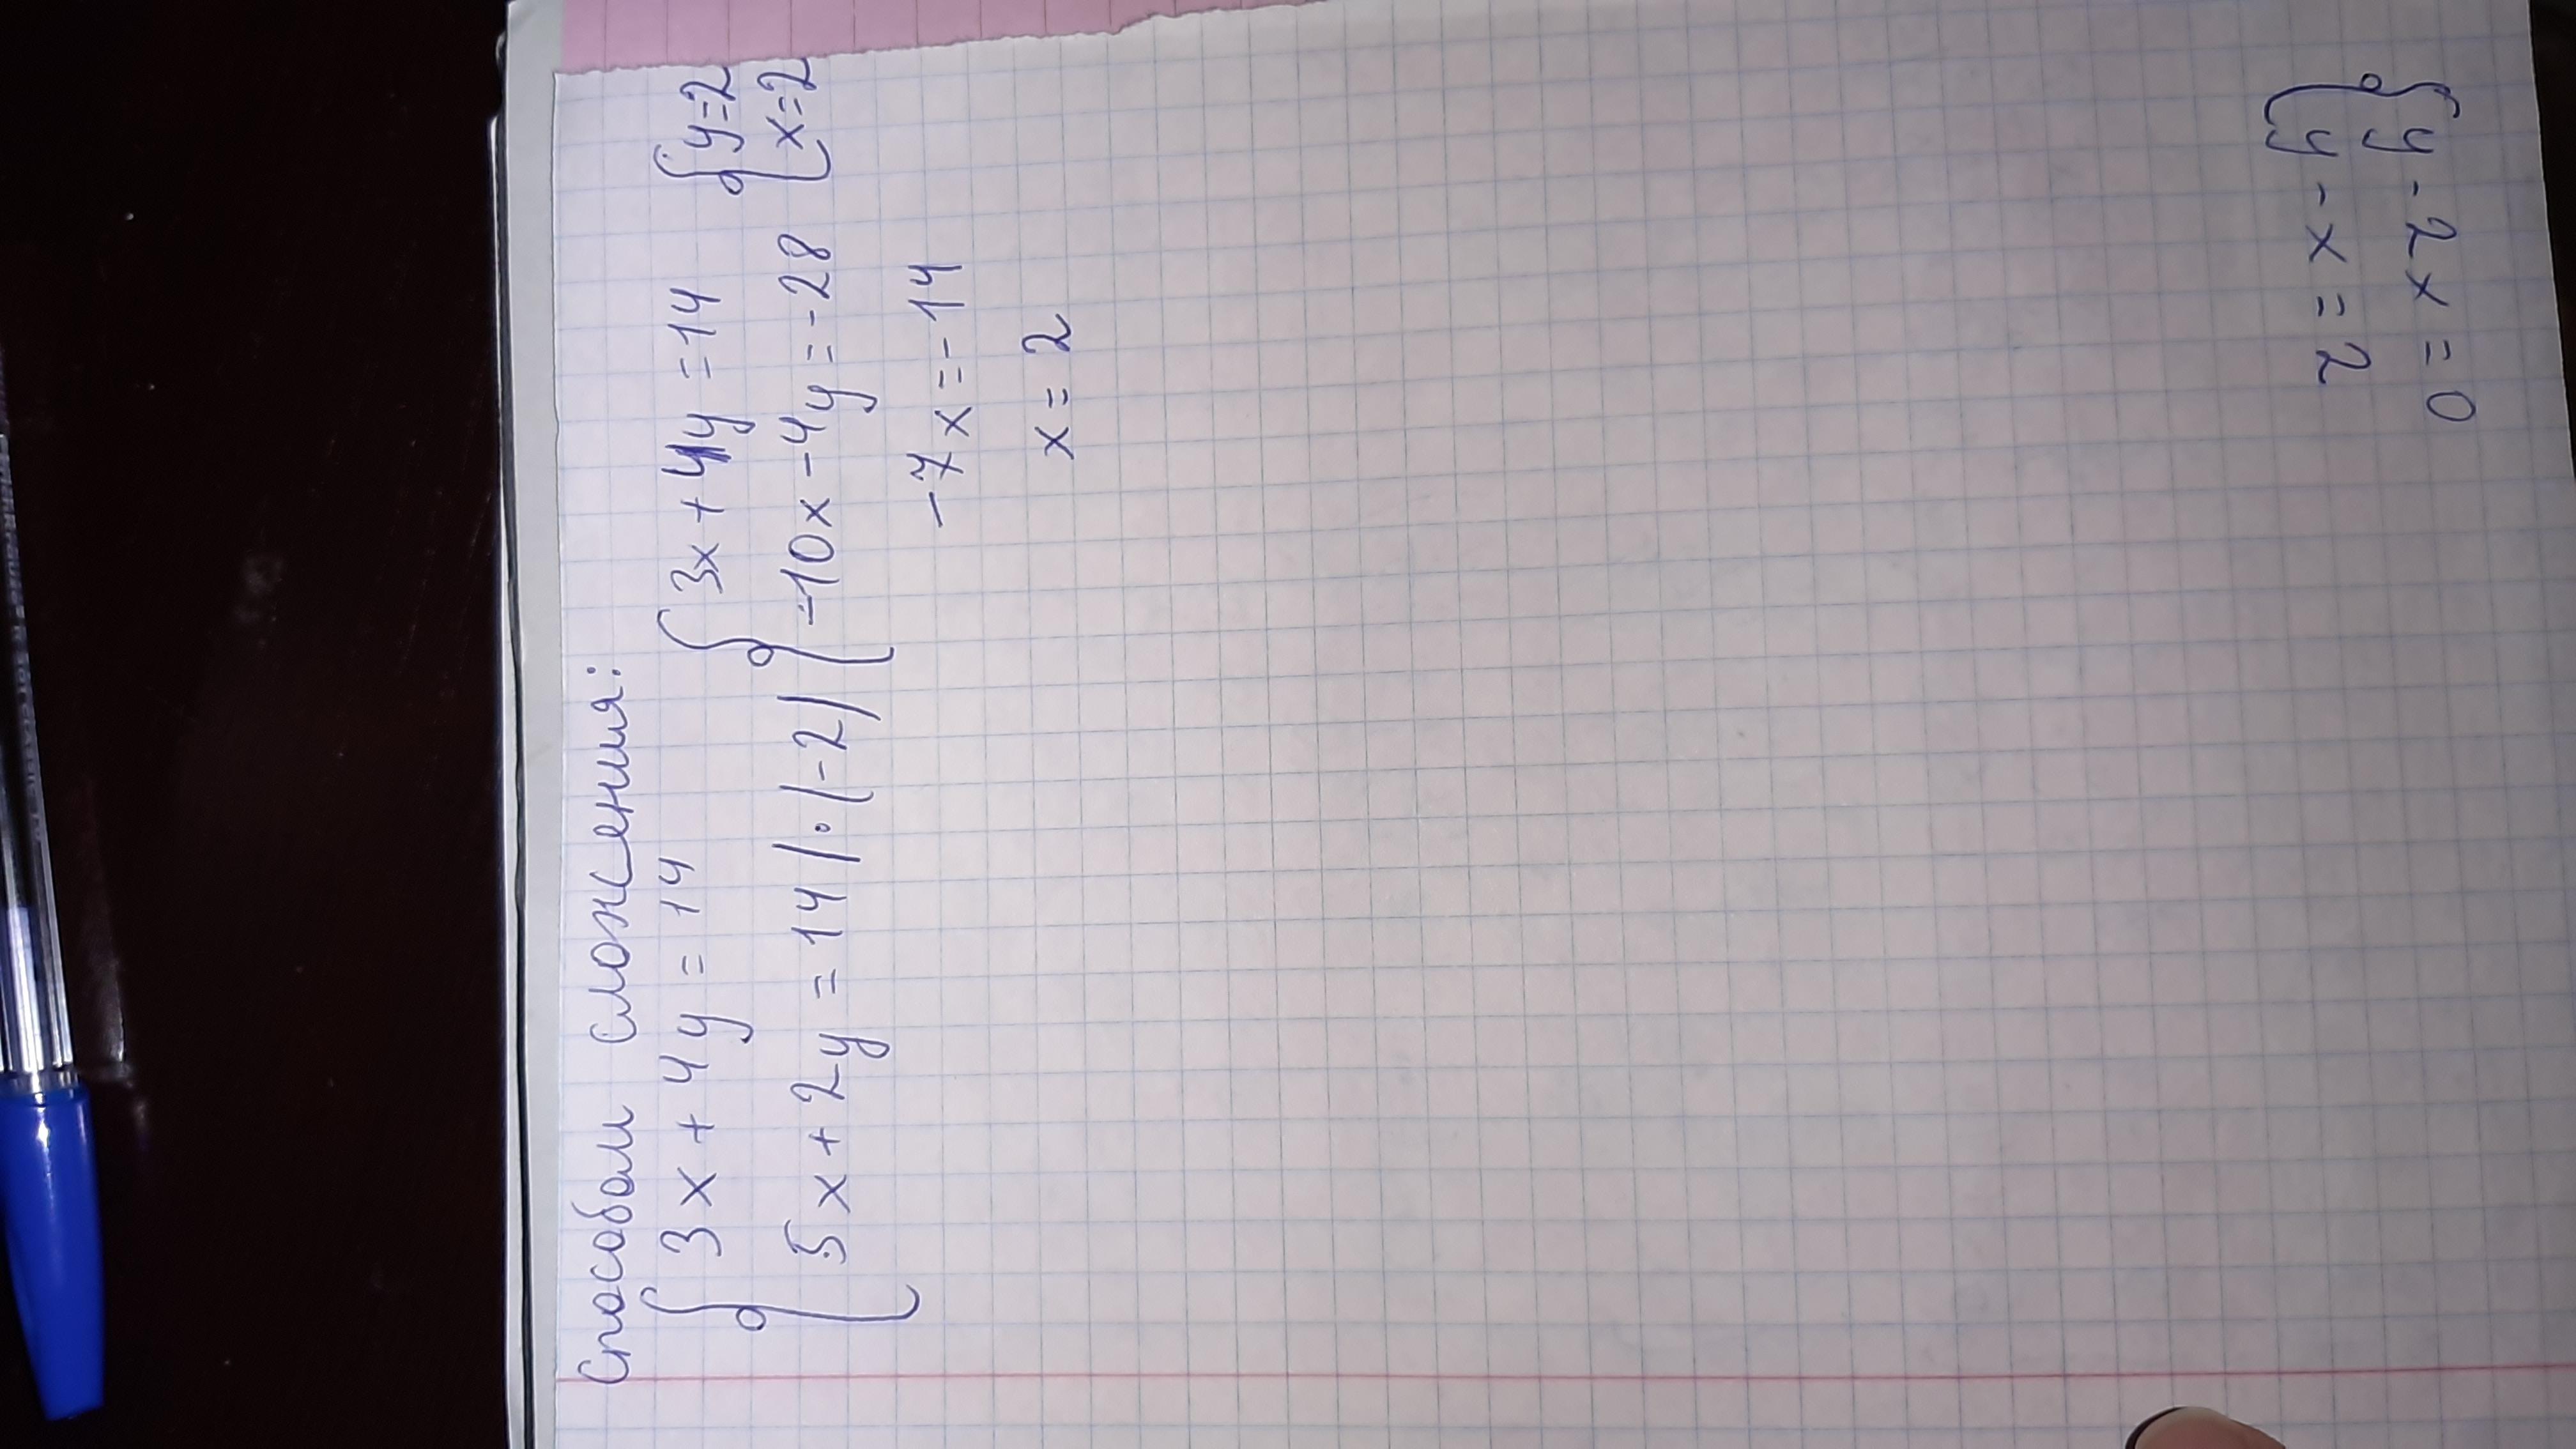 Способом сложения:
{3x + 4y = 14 {3x + 4y = 14 {y = 2
5x + 2y = 14 | · (-2) -10x - 4y = -28 x = 2
-7x = -14
x = 2
{y - 2x = 0
y - x = 2